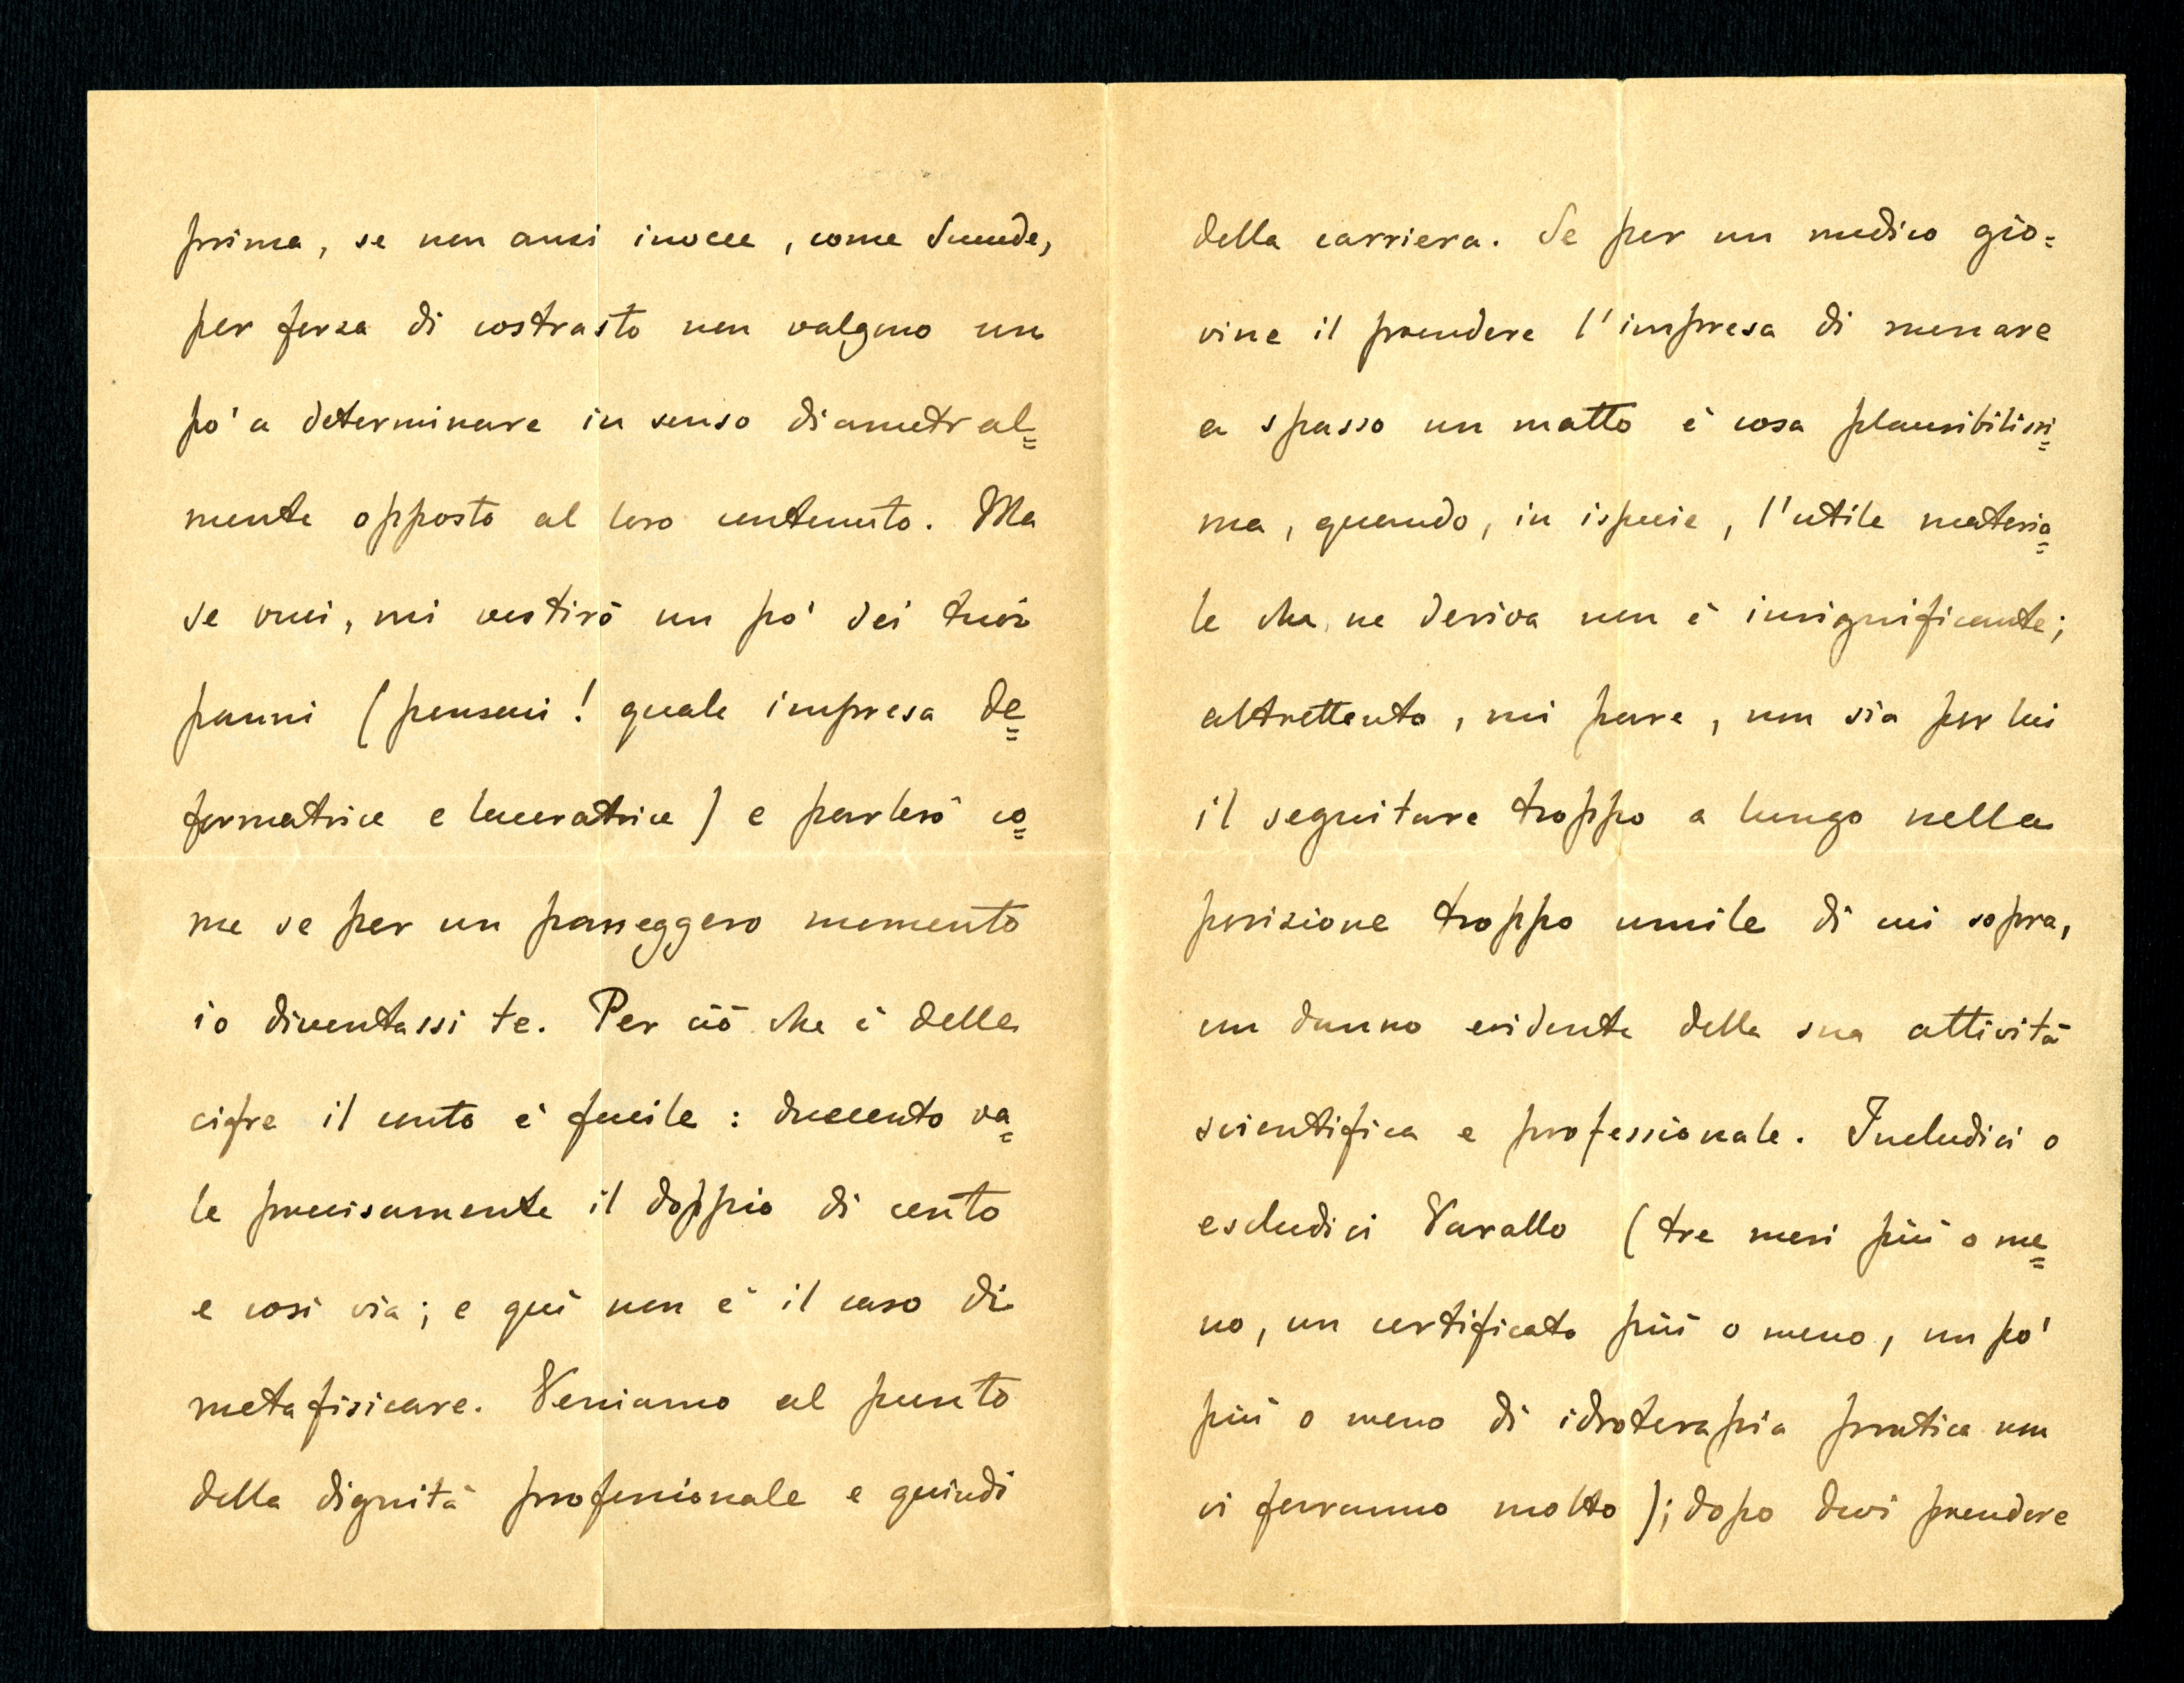 prima, se non anzi invece, come succede,
per forza di costrasto non valgono un
pò' a determinare in senso diametral=
mente opposto al loro contenuto. Ma
se vuoi, mi vestirò un pò' dei tuoi
panni (pensaci! quale impresa de=
formatrice e laceratrice) e parlerò co=
me se per un passeggero momento
io diventassi te. Per ciò che è delle
cifre il conto è facile: duecento va=
le precisamente il doppio di cento
e così via; e quì non è il caso di
metafisicare. Veniamo al punto
della dignità professionale e quindi
della carriera. Se per un medico gio=
vine il prendere l'impresa di menare
a spasso un matto è cosa plausibilissi=
ma, quando, in ispecie, l'utile materia=
le che ne deriva non è insignificante;
altrettanto, mi pare, non sia per lui
il seguitare troppo a lungo nella
posizione troppo umile di cui sopra,
un danno evidente della sua attività
scientifica e professionale. Includici o
escludici Varallo (tre mesi più o me=
no, un certificato più o meno, un pò'
più o meno di idroterapia pratica non
ci faranno molto); dopo devi prendere